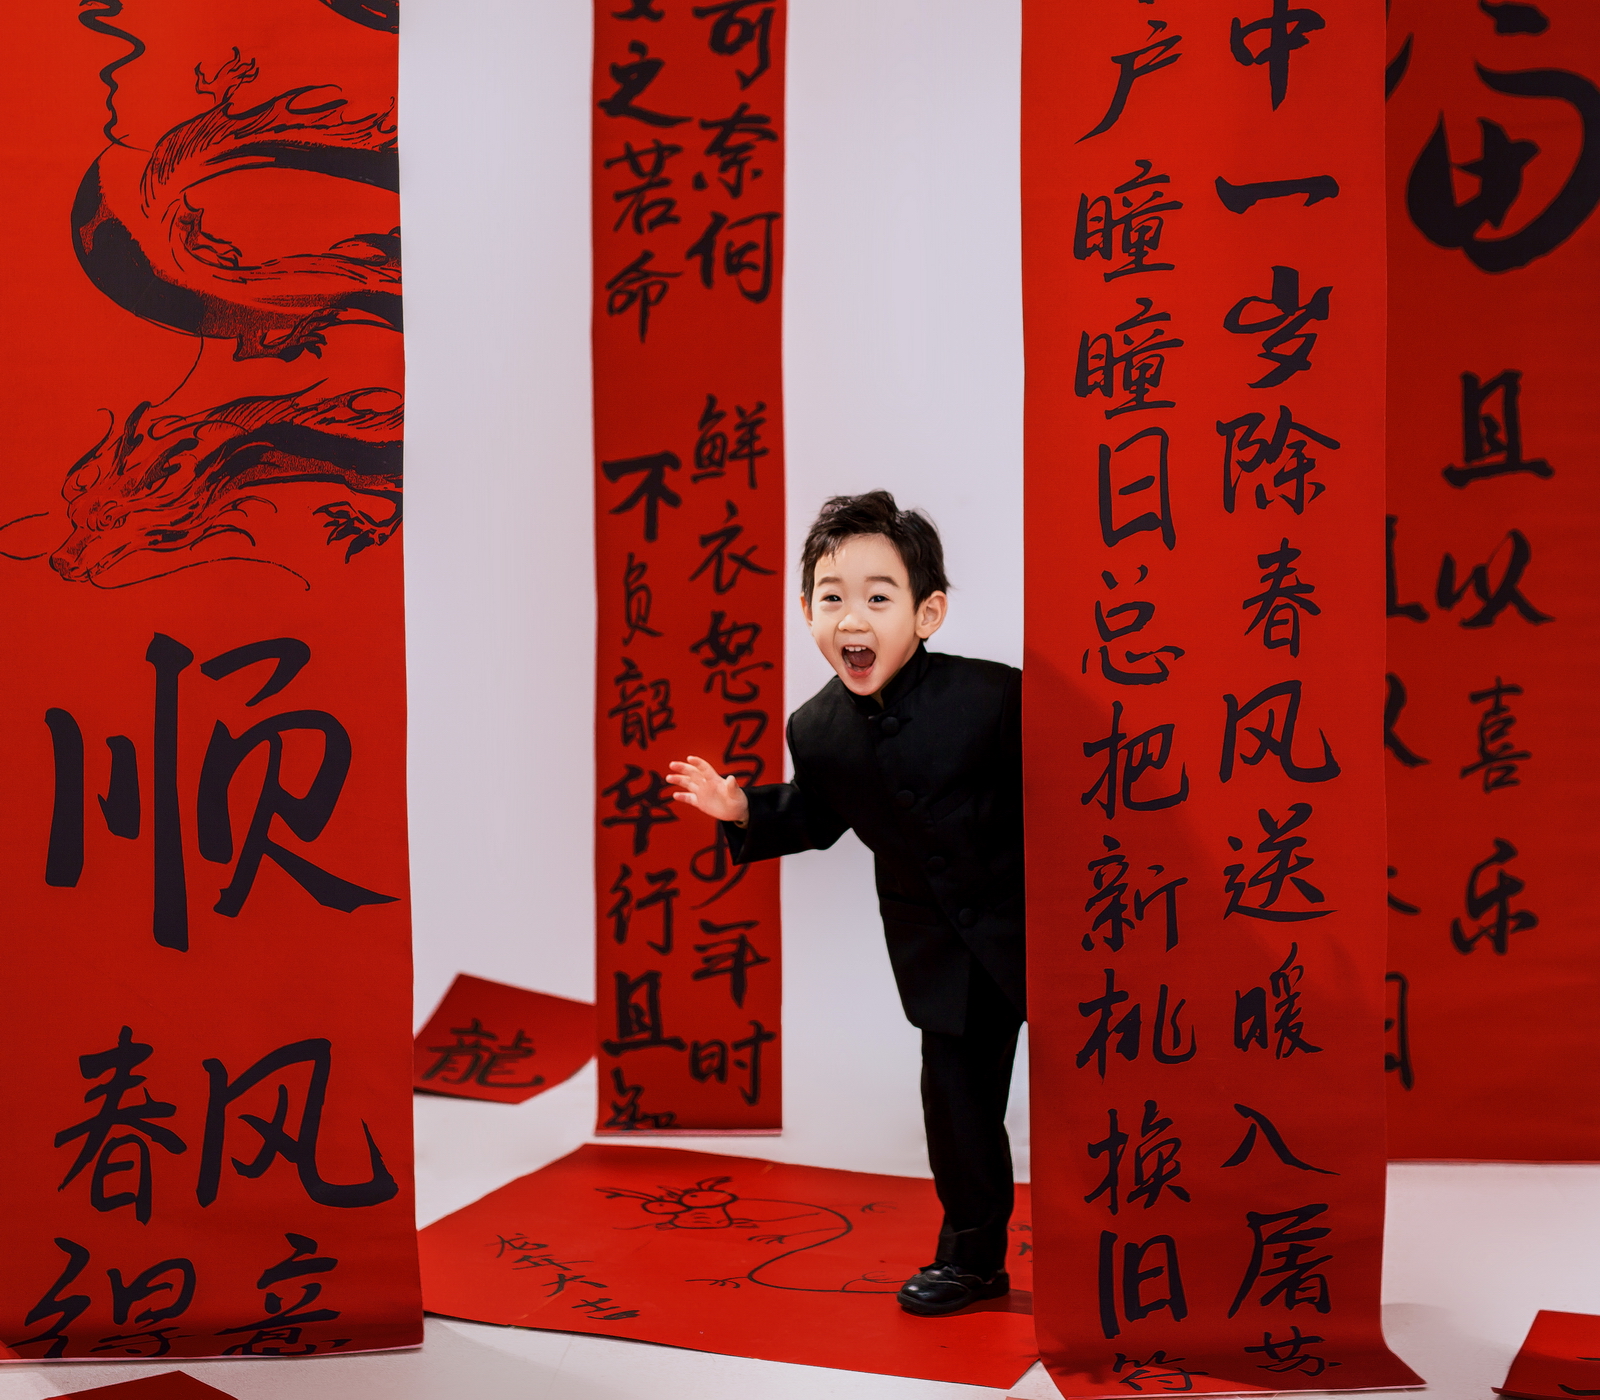 顺
春风
得意
可奈何 鲜衣怒马少年时
之若命 不负韶华行且知
龍
龙年大吉
中一岁除春风送暖入屠苏
户瞳瞳日总把新桃换旧符
福
且以喜乐